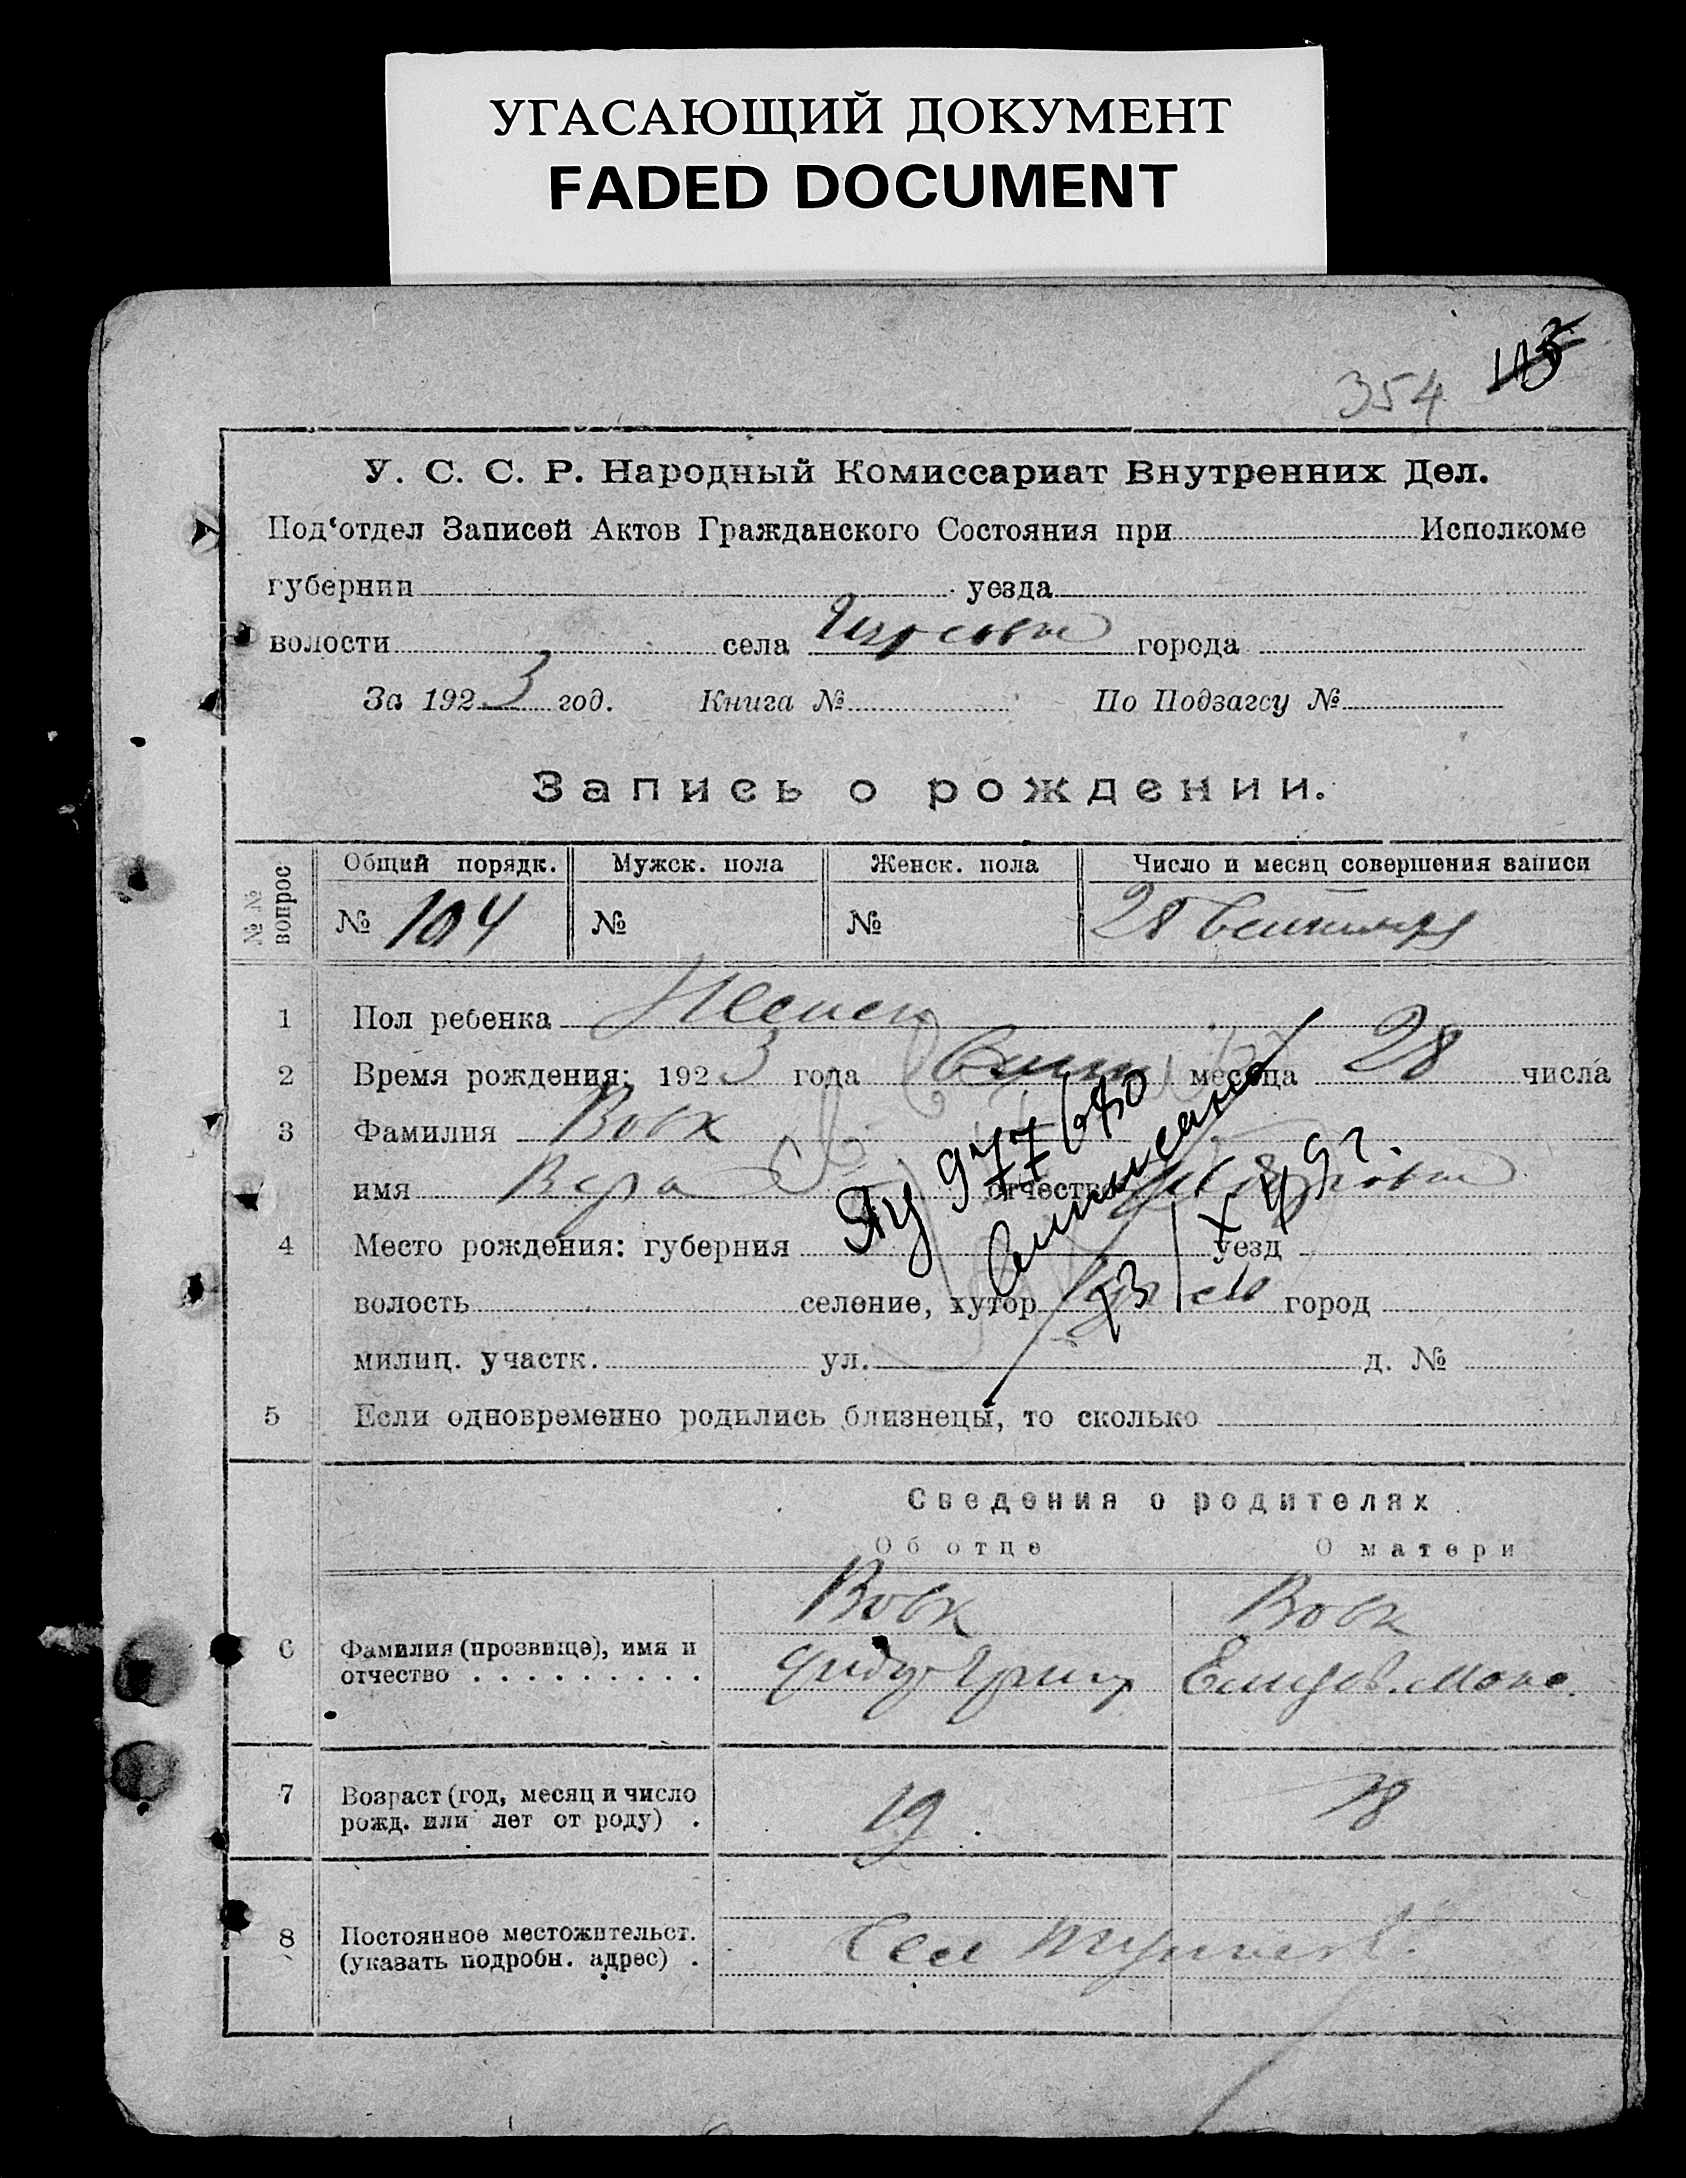 УГАСАЮЩИЙ ДОКУМЕНТ
FADED DOCUMENT
354
У. С. С. Р. Народный Комиссариат Внутренних Дел.
Под‘отдел Записей Актов Гражданского Состояния при Исполкоме
губернии уезда
волости села города
За 1923 год. Книга № По Подзагсу №
Запись о рождении.
№ № вопрос
Общий порядк. Мужск. пола Женск. пола Число и месяц совершения записи
№ 104 № № 28 Сентября
1 Пол ребенка Женск
2 Время рождения: 1923 года месяца 28 числа
3 Фамилия Вовк
имя Вера отчество
Яу 977680
4 Место рождения: губерния уезд
волость селение, хутор город
милиц. участк. ул. д. №
5 Если одновременно родились близнецы, то сколько
Сведения о родителях
Об отце О матери
Вовк Вовк
6 Фамилия (прозвище), имя и
отчество . . . . . . . . .
7 Возраст (год, месяц и число
рожд. или лет от роду) .
19 18
8 Постоянное местожительст.
(указать подробн. адрес) .
Село